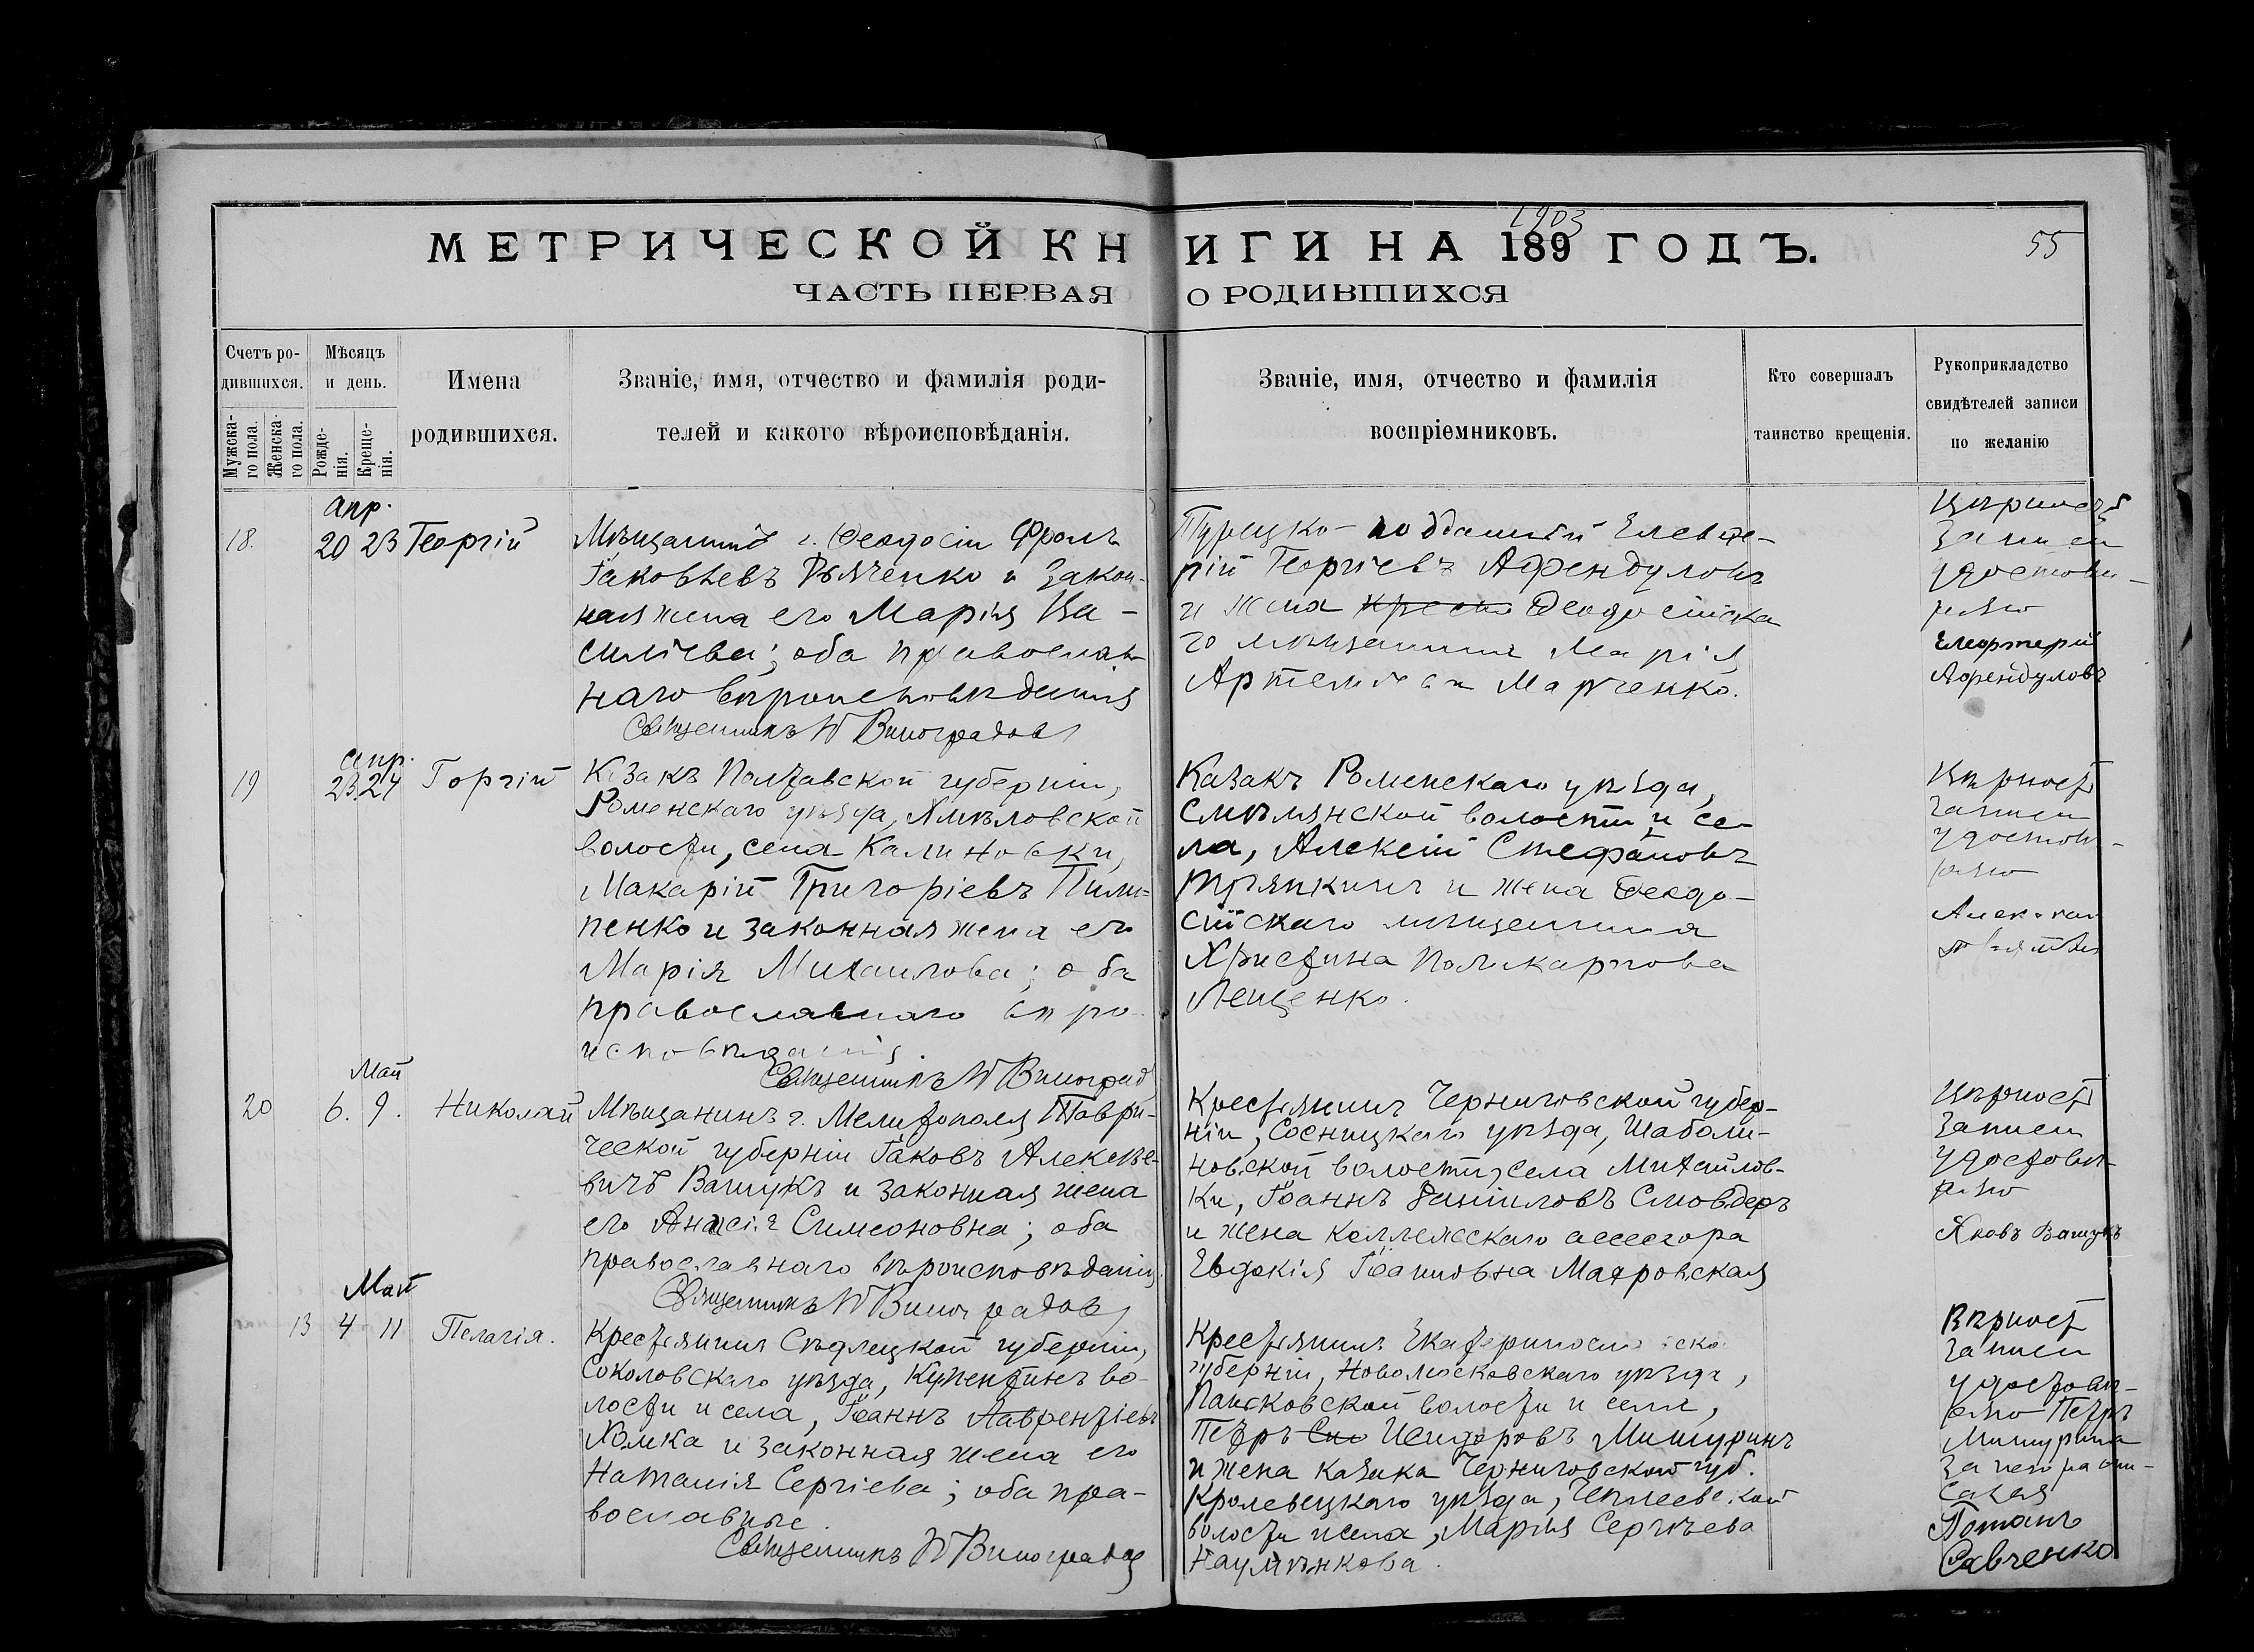 1903
МЕТРИЧЕСКОЙ КНИГИ НА 189 ГОДЪ.
55
ЧАСТЬ ПЕРВАЯ О РОДИВШИХСЯ
Счетъ родившихся.
Мужскаго пола.
Женскаго пола.
Мѣсяцъ и день.
Рожденія.
Крещенія.
Имена
родившихся.
Званіе, имя, отчество и фамилія роди-
телей и какого вѣроисповѣданія.
Званіе, имя, отчество и фамилія
воспріемниковъ.
Кто совершалъ
таинство крещенія.
Рукоприкладство
свидѣтелей записи
по желанію
апр.
18. 20 23 Георгій
Мѣщанинъ г. Ѳеодосіи Фролъ
Іаковлевъ Дьяченко и закон-
ная жена его Марія Ва-
силіева; оба православ-
наго вѣроисповѣданія
Священникъ Виноградовъ
Турецко-подданный Елевѳе-
рій Георгіевъ Афендуловъ
и жена Ѳеодосійска
го мѣщанина Марія
Артемьева Марченко.
записи
удостовѣ-
ряю
Елефтерій
Афендуловъ
апр.
19 23. 24 Горгій
Казакъ Полтавской губерніи,
Роменскаго уѣзда, Хмѣловской
волости, села Калиновки,
Макарій Григоріевъ Пили-
пенко и законная жена его
Марія Михаилова; оба
православнаго вѣро-
исповѣданія.
Священникъ Виноград
Казакъ Роменскаго уѣзда,
Смѣлянской волости и се-
ла, Алексій Стефановъ
и жена Ѳеодо-
сійскаго мѣщанина
Христина Поликарпова
Лещенко.
Вѣрность
записи
удостовѣ-
ряю
Май
20 6. 9. Николай
Мѣщанинъ г. Мелитополя Таври-
ческой губерніи Іаковъ Алексѣе-
вичъ Вашукъ и законная жена
его Анисія Симеоновна; оба
православнаго вѣроисповѣданія
Священникъ Виноградовъ
Крестьянинъ Черниговской губер-
ніи, Сосницкаго уѣзда, Шабали-
новской волости, села Михайлов-
ки, Іоаннъ Даніиловъ
и жена коллежскаго ассесора
Евдокія Іоанновна
Вѣрность
записи
удостовѣ-
ряю
Яковъ Вашукъ
Май
13 4 11 Пелагія.
Крестьянинъ Сѣдлецкой губерніи,
Соколовскаго уѣзда, во-
лости и села, Іоаннъ Лаврентіевъ
Хомка и законная жена его
Наталія Сергіева; оба пра-
вославные.
Священникъ Виноградовъ
Крестьянинъ Екатеринославско
губерніи, Новомосковскаго уѣзда,
волости и села,
Петръ Исидоровъ Мишуринъ
и жена казака Черниговской губ.
Кролевецкаго уѣзда,
волости и села, Марія Сергѣева
Науменкова.
Вѣрность
записи
удостовѣ-
ряю Петръ
Мишуринъ
за него распи-
сался
Потапъ
Савченко